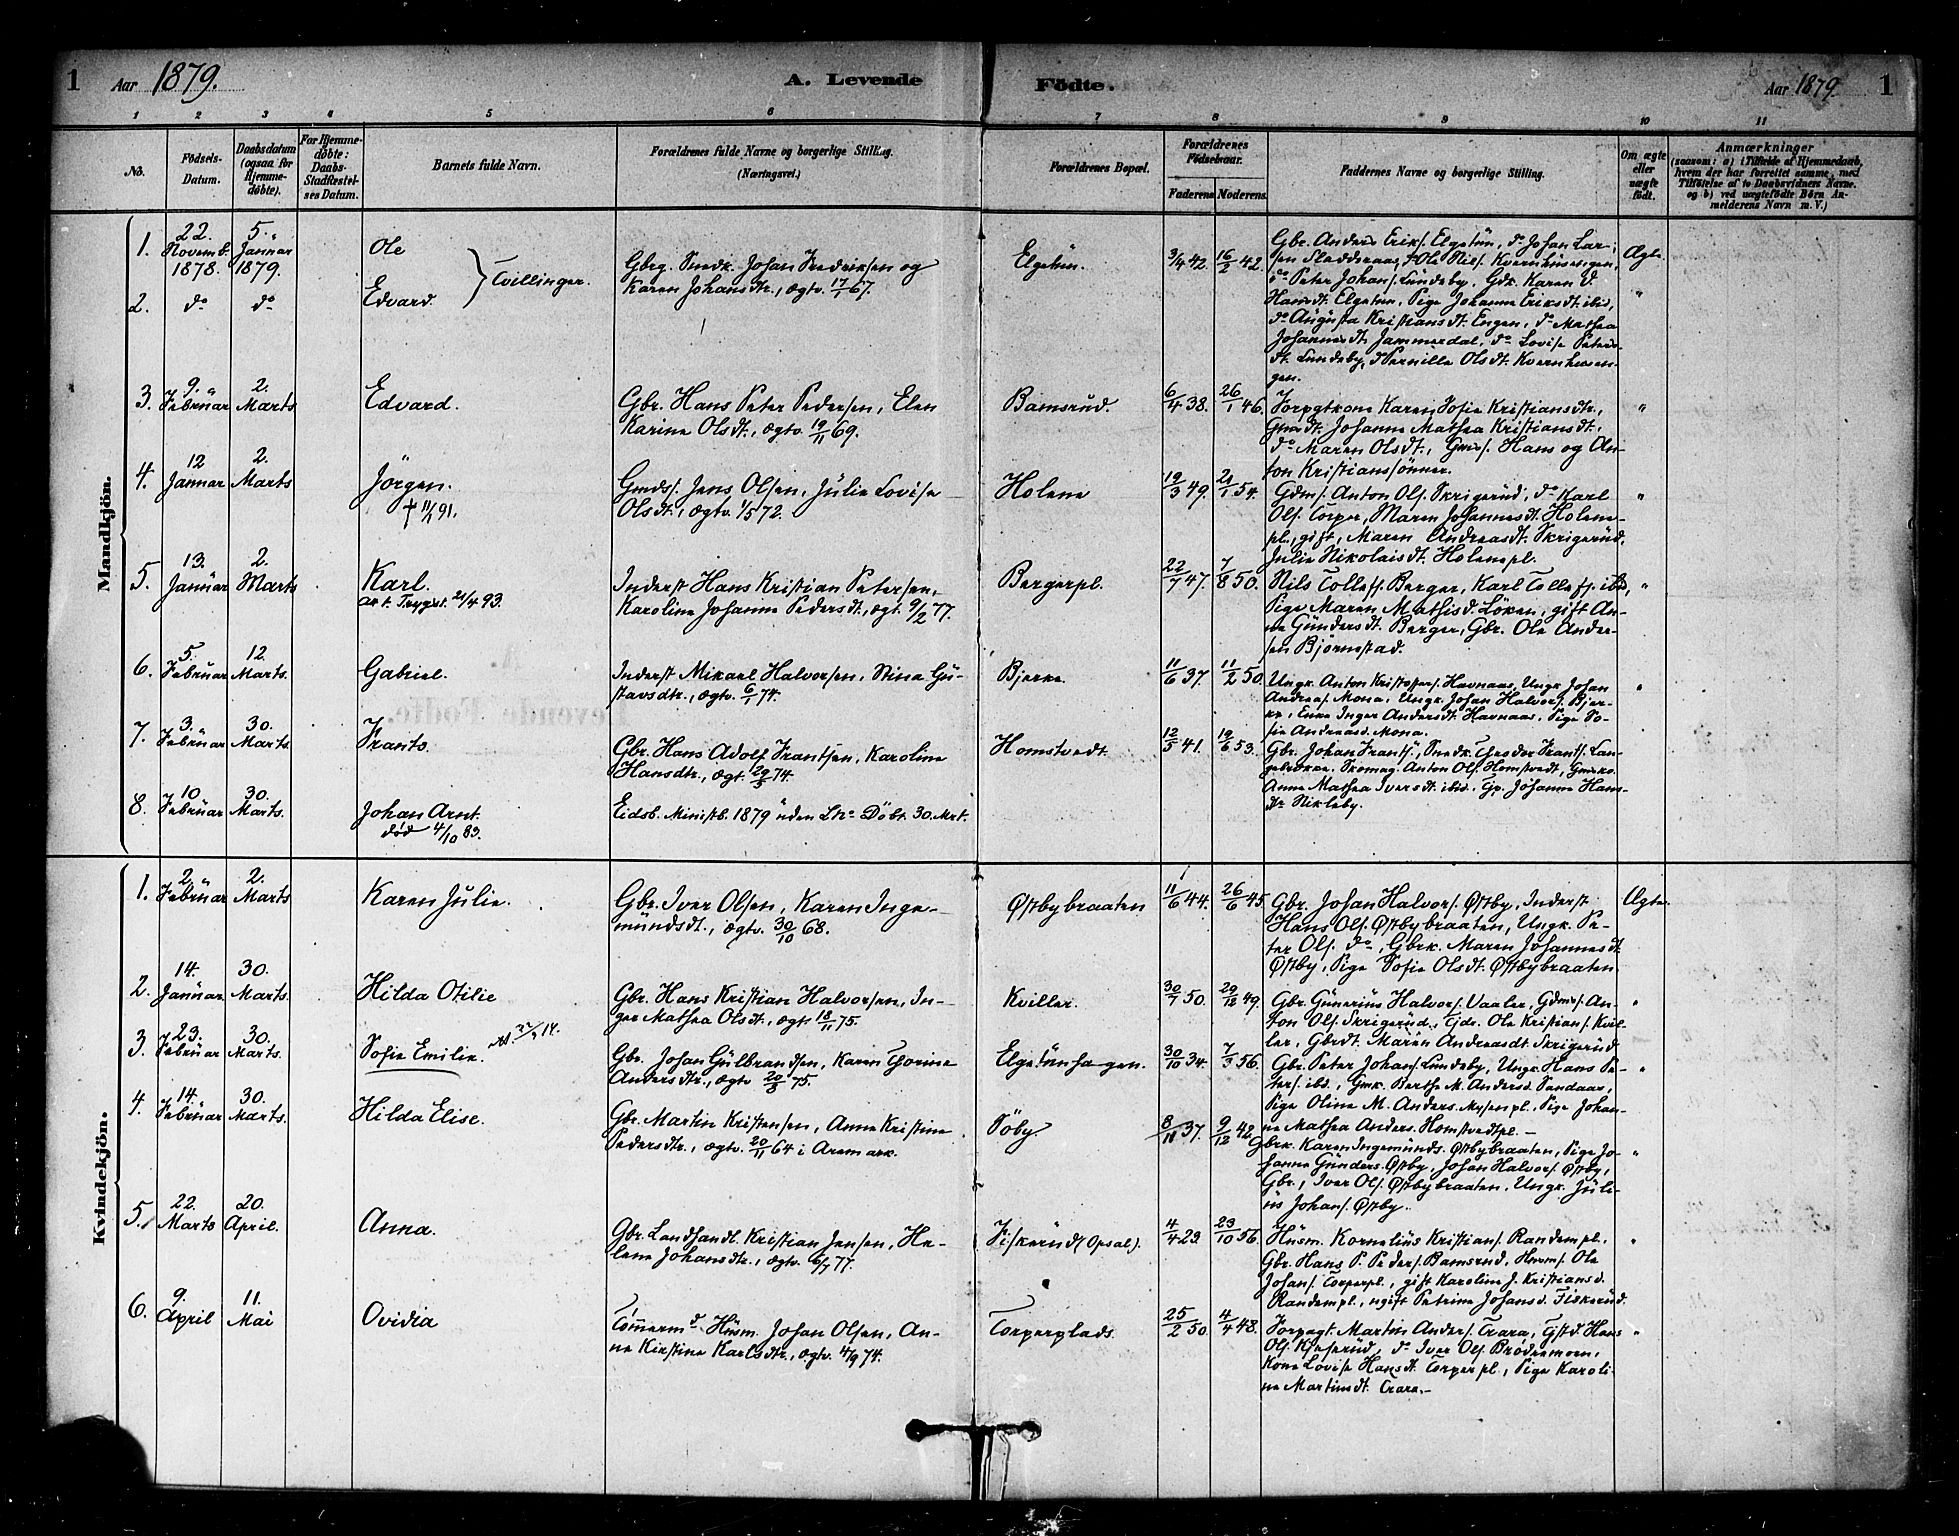 1 Aar 1879. A. Levende Födte. Aar 1879. 1
1 2 3 4 5 6 7 8 9 10 11
No.
Födsels-
Datum.
Daabsdatum
(ogsaa for
Hjemme-
döbte).
For Hjemme-
döbte:
Daabs-
Stadfæstel-
ses Datum.
Barnets fulde Navn.
Forældrenes fulde Navne og borgerlige Stilling.
(Næringsvei.)
Forældrenes Bopæl.
Forældrenes
Födselsaar.
Faderens Moderens.
Faddernes Navne og borgerlige Stilling.
Om ægte
eller
uægte
födt.
Anmærkninger
(saasom: a) i Tilfælde af Hjemmedaab,
hvem der har forrettet samme, med
Tilföielse af to Daabsvidners Navne.
og b) ved uægtefödte Börn An-
melderens Navn m. V.)
Mandkjön.
1. 22. Novemb. 1878. 5. Januar 1879. Ole
2. do do Edvard. } Tvillinger.
Gbrg. Smdk. Johan Fredriksen og
Karen Johansdtr., ægtv. 17/1 67.
Elgetun. 3/4 42. 16/2 42.
Gbr. Anders Eriks. Elgetun, do Johan Lar-
sen Sladderaas, do Ole Nils. Kvernhusengen,
do Peter Johans. Lundeby, Gdk. Karen
Hansdt. Elgetun, Pige Johanne Eriksdt. ibid,
do Augusta Kristiansdt. Engen, do Mathea
Johannesdt. Jammerdal, do Lovise Peters-
dt. Lundeby, do Pernille Olsdt. Kvernhusen-
gen.
Ægte
"
3. 9. Februar 2. Marts Edvard.
Gbr. Hans Peter Pedersen, Elen
Karine Olsdt., ægtv. 19/11 69.
Bamsrud. 6/4 38. 26/1 46.
Forpgtkone Karen Sofie Kristiansdtr.,
Gmdt. Johanne Mathea Kristiansdt.,
do Maren Olsdt., Gms. Hans og An-
ton Kristianssönner.
"
4. 12 Januar 2. Marts Jörgen.
† 11/7 91.
Gmds. Jens Olsen, Julie Lovise
Olsdt., ægtv. 1/5 72.
Holene 19/3 49. 21/1 54.
Gdms. Anton Ols. Skrigerud, do Karl
Ols. Torper, Maren Johannesdt. Holene-
pl., gift, Maren Andreasdt. Skrigerud,
Julie Nikolaisdt. Holenepl.
"
5. 13. Januar 2. Marts Karl.
att. Trygst. 21/4 93.
Inderst Hans Kristian Petersen,
Karoline Johanne Pedersdt., ægt. 9/2 77.
Bergerpl. 22/7 47. 7/8 50.
Nils Tollefs. Berger, Karl Tollefs. ibid,
Pige Maren Mathisd. Löken, gift An-
ne Gundersdt. Berger, Gbr. Ole Ander-
sen Björnestad.
"
6. 5. Februar 12. Marts. Gabriel.
Inderst Mikael Halvorsen, Stina Gu-
stavsdtr., ægtv. 6/1 74.
Bjerke. 11/6 37. 11/2 50.
Ungk. Anton Kristoffers. Havnaas, Ungk. Johan
Andreas. Mona, Ungk. Johan Halvors. Bjer-
ke, Enke Inger Andersdt. Havnaas, Pige So-
fie Andreasd. Mona.
"
7. 3. Februar 30. Marts. Frants.
Gbr. Hans Adolf Frantsen, Karoline
Hansdtr., ægt. 29/3 74.
Homstvedt. 12/5 41. 19/6 53.
Gbr. Johan Frants., Smedk. Theodor Frants. Lan-
gebrekke. Skomag. Anton Ols. Homstvedt, Gmsko.
Anne Mathea Iversdt. ibid. Tp. Johanne Hans-
dr Nikleby.
8. 10. Februar 30. Marts. Johan Arnt.
död 4/10 83.
Eidsb. Ministb. 1879 uden Lno Döbt. 30. Mrt.
Kvindekjön.
1. 2. Februar 2. Marts Karen Julie.
Gbr. Iver Olsen, Karen Inge-
mundsdt., ægtv. 30/10 68.
Østbybraaten 11/6 44. 26/6 45
Gbr. Johan Halvors. Østby, Inderst
Hans Ols. Østbybraaten, Ungk. Pe-
ter Ols. do, Gbrk. Maren Johannesdt
Østby, Pige Sofie Olsdt. Østbybraaten.
Ægte.
2. 14. Januar 30. Marts. Hilda Otilie
Gbr. Hans Kristian Halvorsen, In-
ger Mathea Olsdt., ægt 18/11 75.
Kviller. 30/7 50. 29/12 49.
Gbr. Gunerius Halvors. Vaaler, Gdms. An-
ton Ols. Skrigerud, Tjdr. Ole Kristians. Kvil-
ler, Gbrdt. Maren Andreasdt. Skrigerud
"
3. 23. Februar 30. Marts. Sofie Emilie.
Gbr. Johan Gulbrandsen, Karen Thorine
Andersdtr., ægtv 20/3 75.
Elgetunhagen. 30/10 34. 7/3 56.
Gbr. Peter Johans. Lundeby, Ungk. Hans Pe-
ters. ibd., Gmk. Berthe M. Andersd. Sandaas,
Pige Oline M. Anders. Mysenpl., Pige Johan-
ne Mathea Anders. Homstvedtpl. –
"
4. 14. Februar 30. Marts. Hilda Elise.
Gbr. Martin Kristensen, Anne Kristine
Pedersdtr., ægtv. 20/11 64 i Aremark.
Söby. 8/11 37. 9/12 42.
Gbrk. Karen Ingemunds. Østbybraaten, Pige Jo-
hanne Gunders. Østby, Johan Halvors. Østby,
Gbr., Iver Ols. Østbybraaten, Ungk. Juli-
us Johans. Østby.
"
5. 22. Marts 20. April. Anna.
Gbr. Landhandl. Kristian Jensen, He-
lene Johansdtr., ægtv. 6/7 77.
Fiskerud (Opsal). 4/4 29. 23/10 56.
Husm. Kornelius Kristians. Randempl.
Gbr. Hans P. Peders. Bamsrud, Husm. Ole
Johans. Torperpl., gift Karoline J. Kristiansd.
Randempl., ugift Petrine Johansd. Fiskerud.
"
6. 9. April 11. Mai Ovidia
Tömerm d Husm. Johan Olsen, An-
ne Kirstine Karlsdtr., ægtv. 4/9 74.
Torperplads. 25/2 50. 4/4 48.
Forpagt. Martin Anders. Trara, Tjstd. Hans
Ols. Kjeserud, do Iver Ols. Brödremoen,
Kone Lovise Hansdt. Torperpl., Pige Karoli-
ne Martinsdt. Trara. –
"